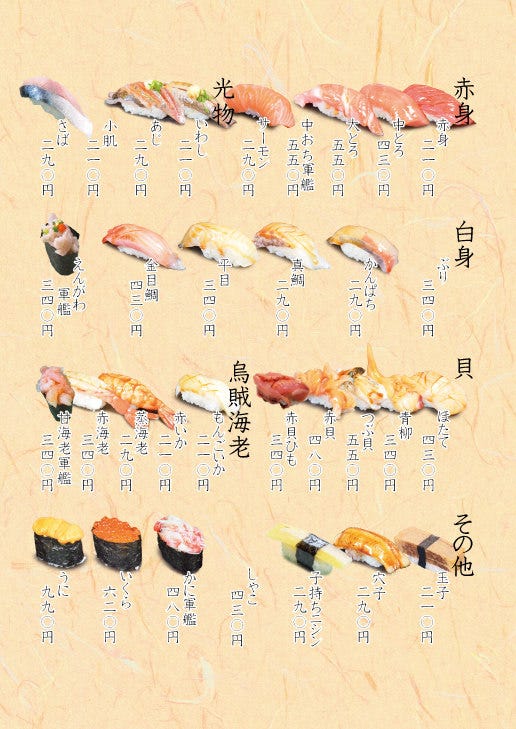 赤身
赤身
二一〇円
中とろ
四三〇円
大とろ
五五〇円
中おち軍艦
五五〇円
サーモン
二九〇円
光物
いわし
二一〇円
あじ
二九〇円
小肌
二一〇円
さば
二九〇円
白身
ぶり
三四〇円
かんぱち
二九〇円
真鯛
二九〇円
平目
三四〇円
金目鯛
四三〇円
えんがわ
軍艦
三四〇円
貝
ほたて
四三〇円
青柳
三四〇円
つぶ貝
五五〇円
赤貝
四八〇円
赤貝ひも
三四〇円
烏賊海老
もんごいか
二一〇円
赤いか
二一〇円
蒸海老
二九〇円
赤海老
三四〇円
甘海老軍艦
三四〇円
その他
玉子
二一〇円
穴子
二九〇円
子持ちニシン
二九〇円
しゃこ
四三〇円
かに軍艦
四八〇円
いくら
六二〇円
うに
九九〇円